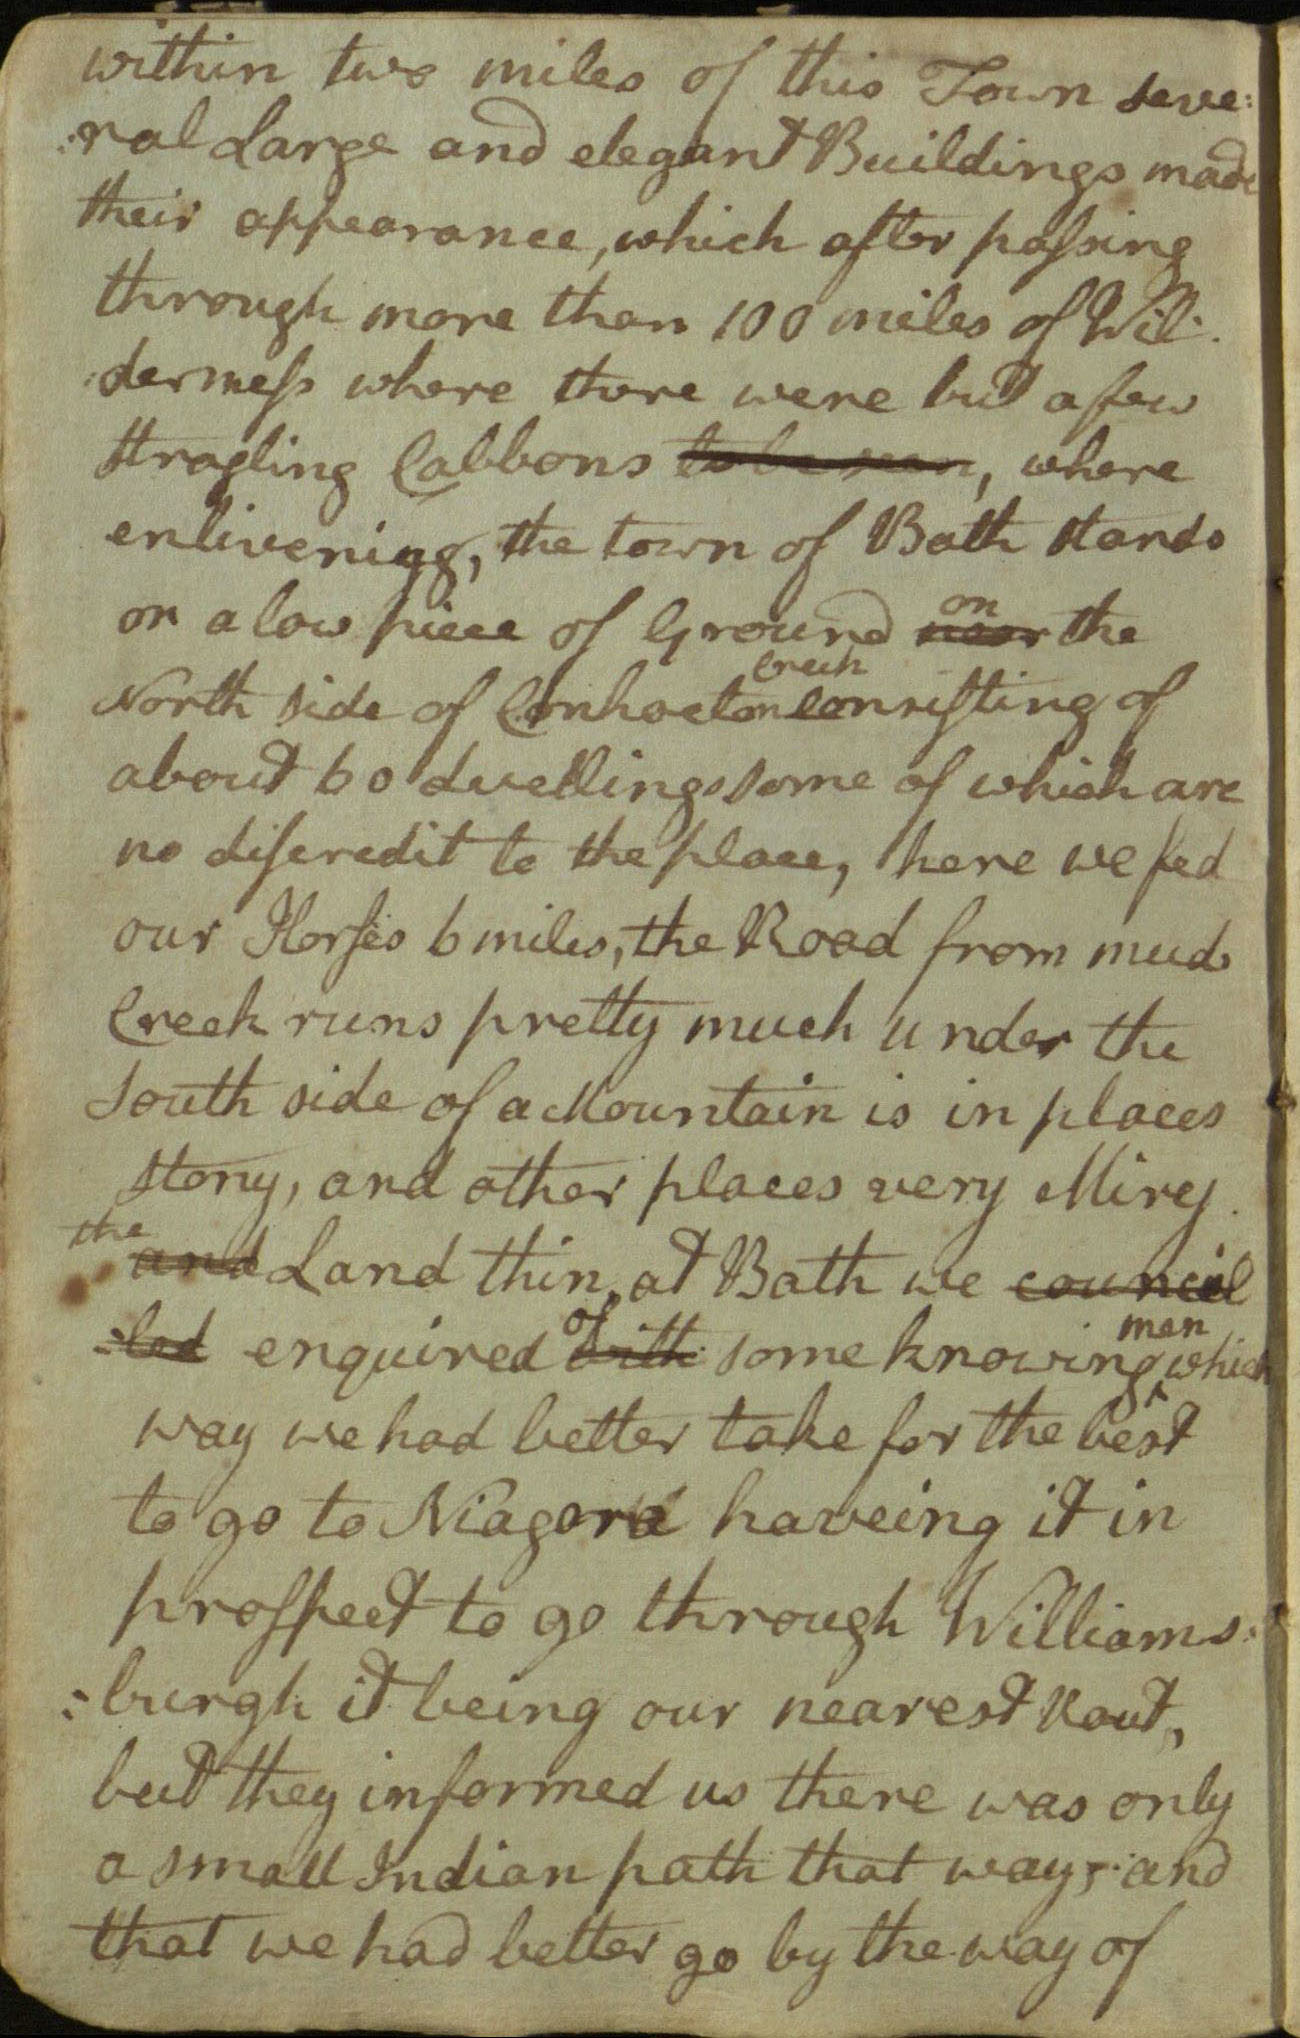 within two miles of this Town seve:
:ral Large and elegant Buildings made
their appearance, which after paſsing
through more than 100 miles of Wil:
:derneſs where there were but a few
stragling Cabbons to be seen, where
enlivenigg, the town of Bath stands
on a low piece of Ground near on the
North side of Conhocton Creek consiſting of
about 60 dwellings some of which are
no diſcredit to the place, here we fed
our Horſes 6 miles, the Road from mud
Creek runs pretty much under the
South side of a Mountain is in places
stony, and other places very Mirey.
the and Land thin, at Bath we council
:led enquired with of some knowing men which
way we had better take for the best
to go to Niagara haveing it in
proſpect to go through Williams:
:burgh it being our nearest Rout,
but they informed us there was only
a small Indian path that way, and
that we had better go by the way of